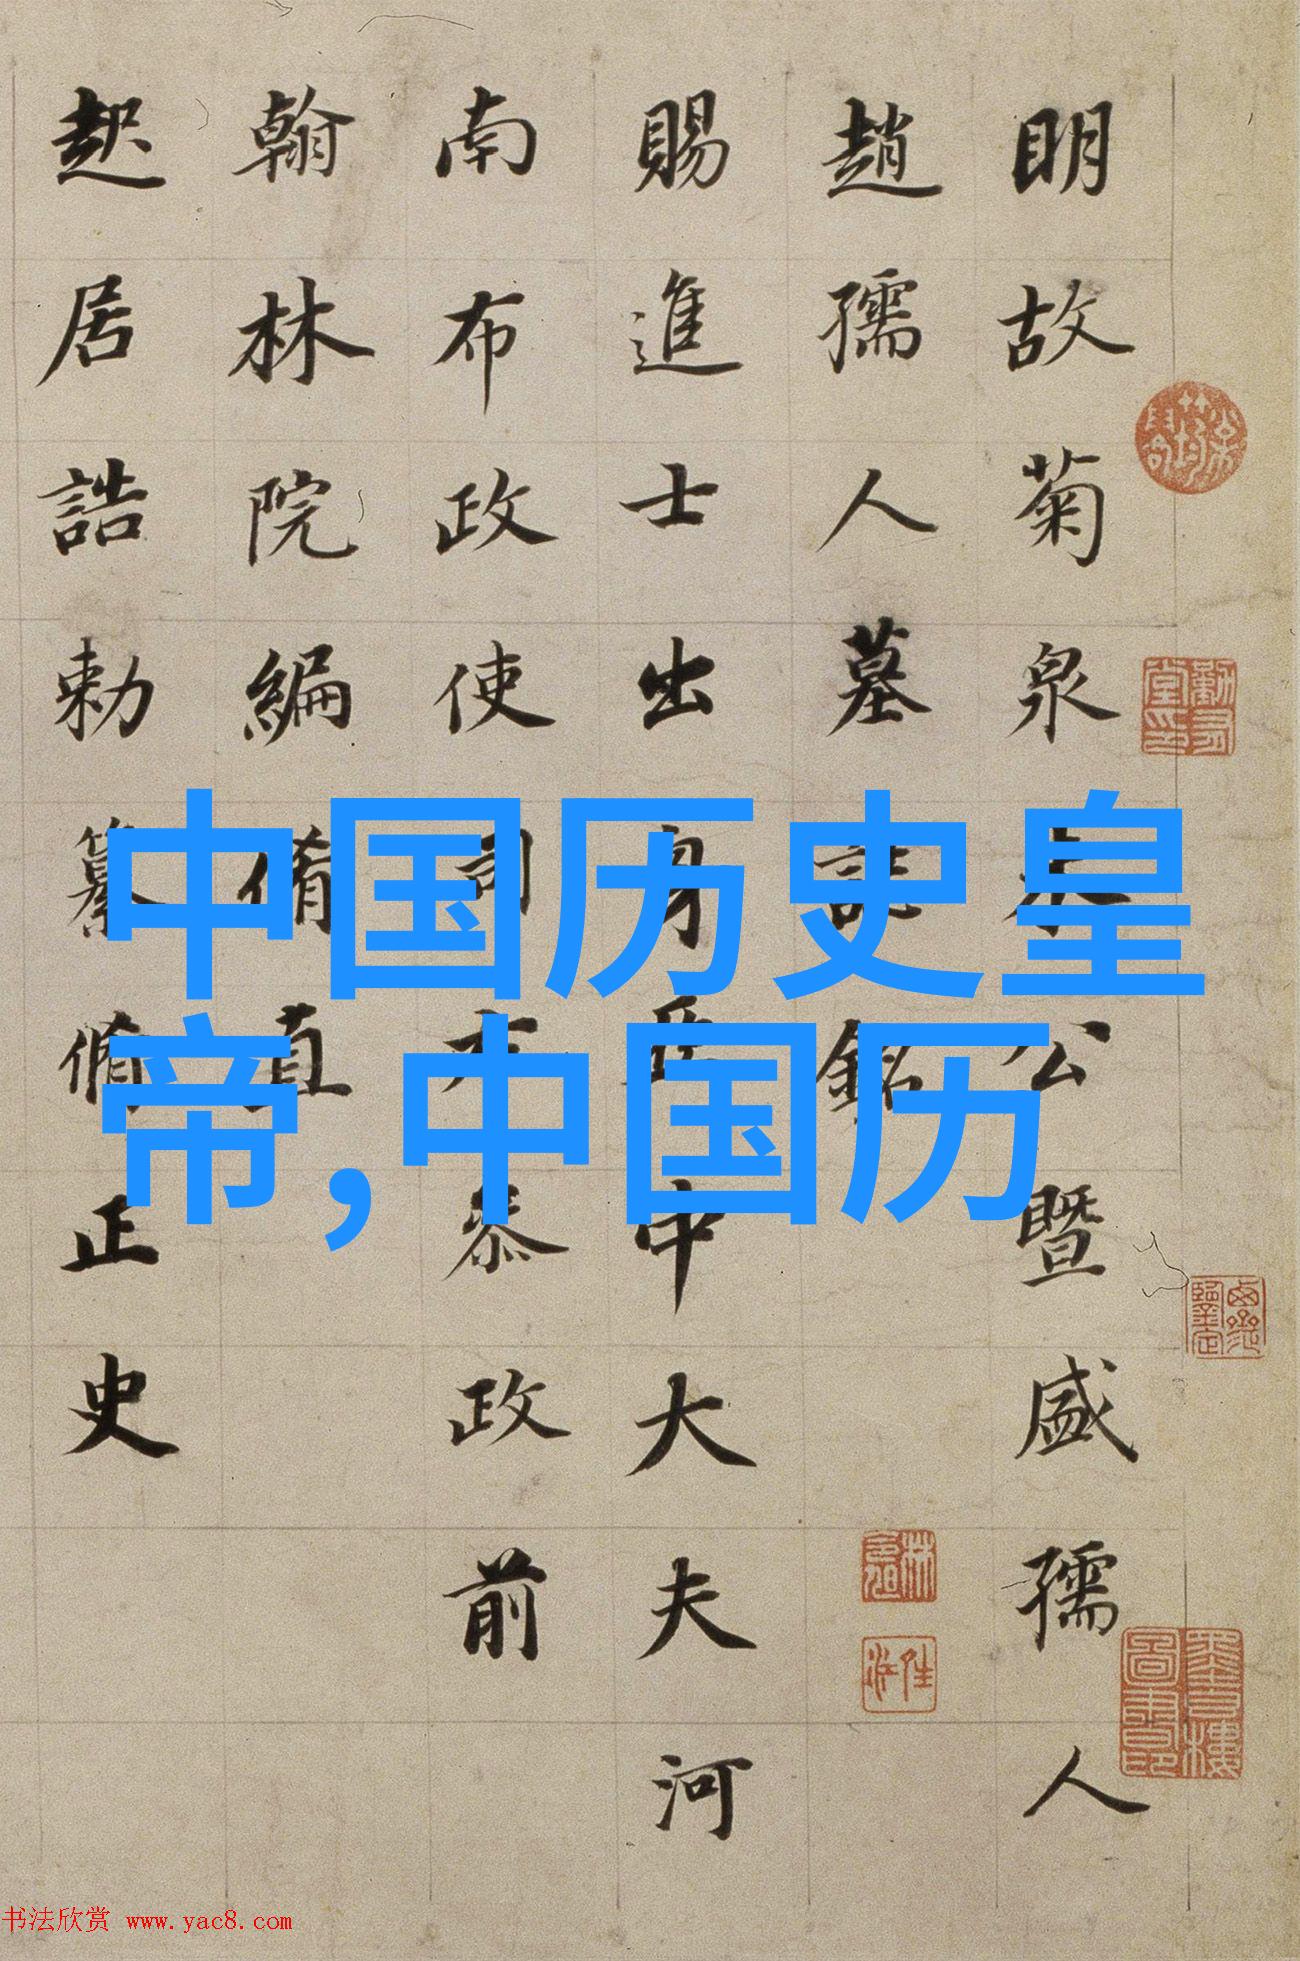 明故菊泉公暨盛孺人
趙孺人墓誌銘
賜進士出身中大夫河
南布政使司政前
翰林院編脩直
起居誥勅纂脩正史
中国历史皇
帝,中国历
书法欣赏 www.yac8.com